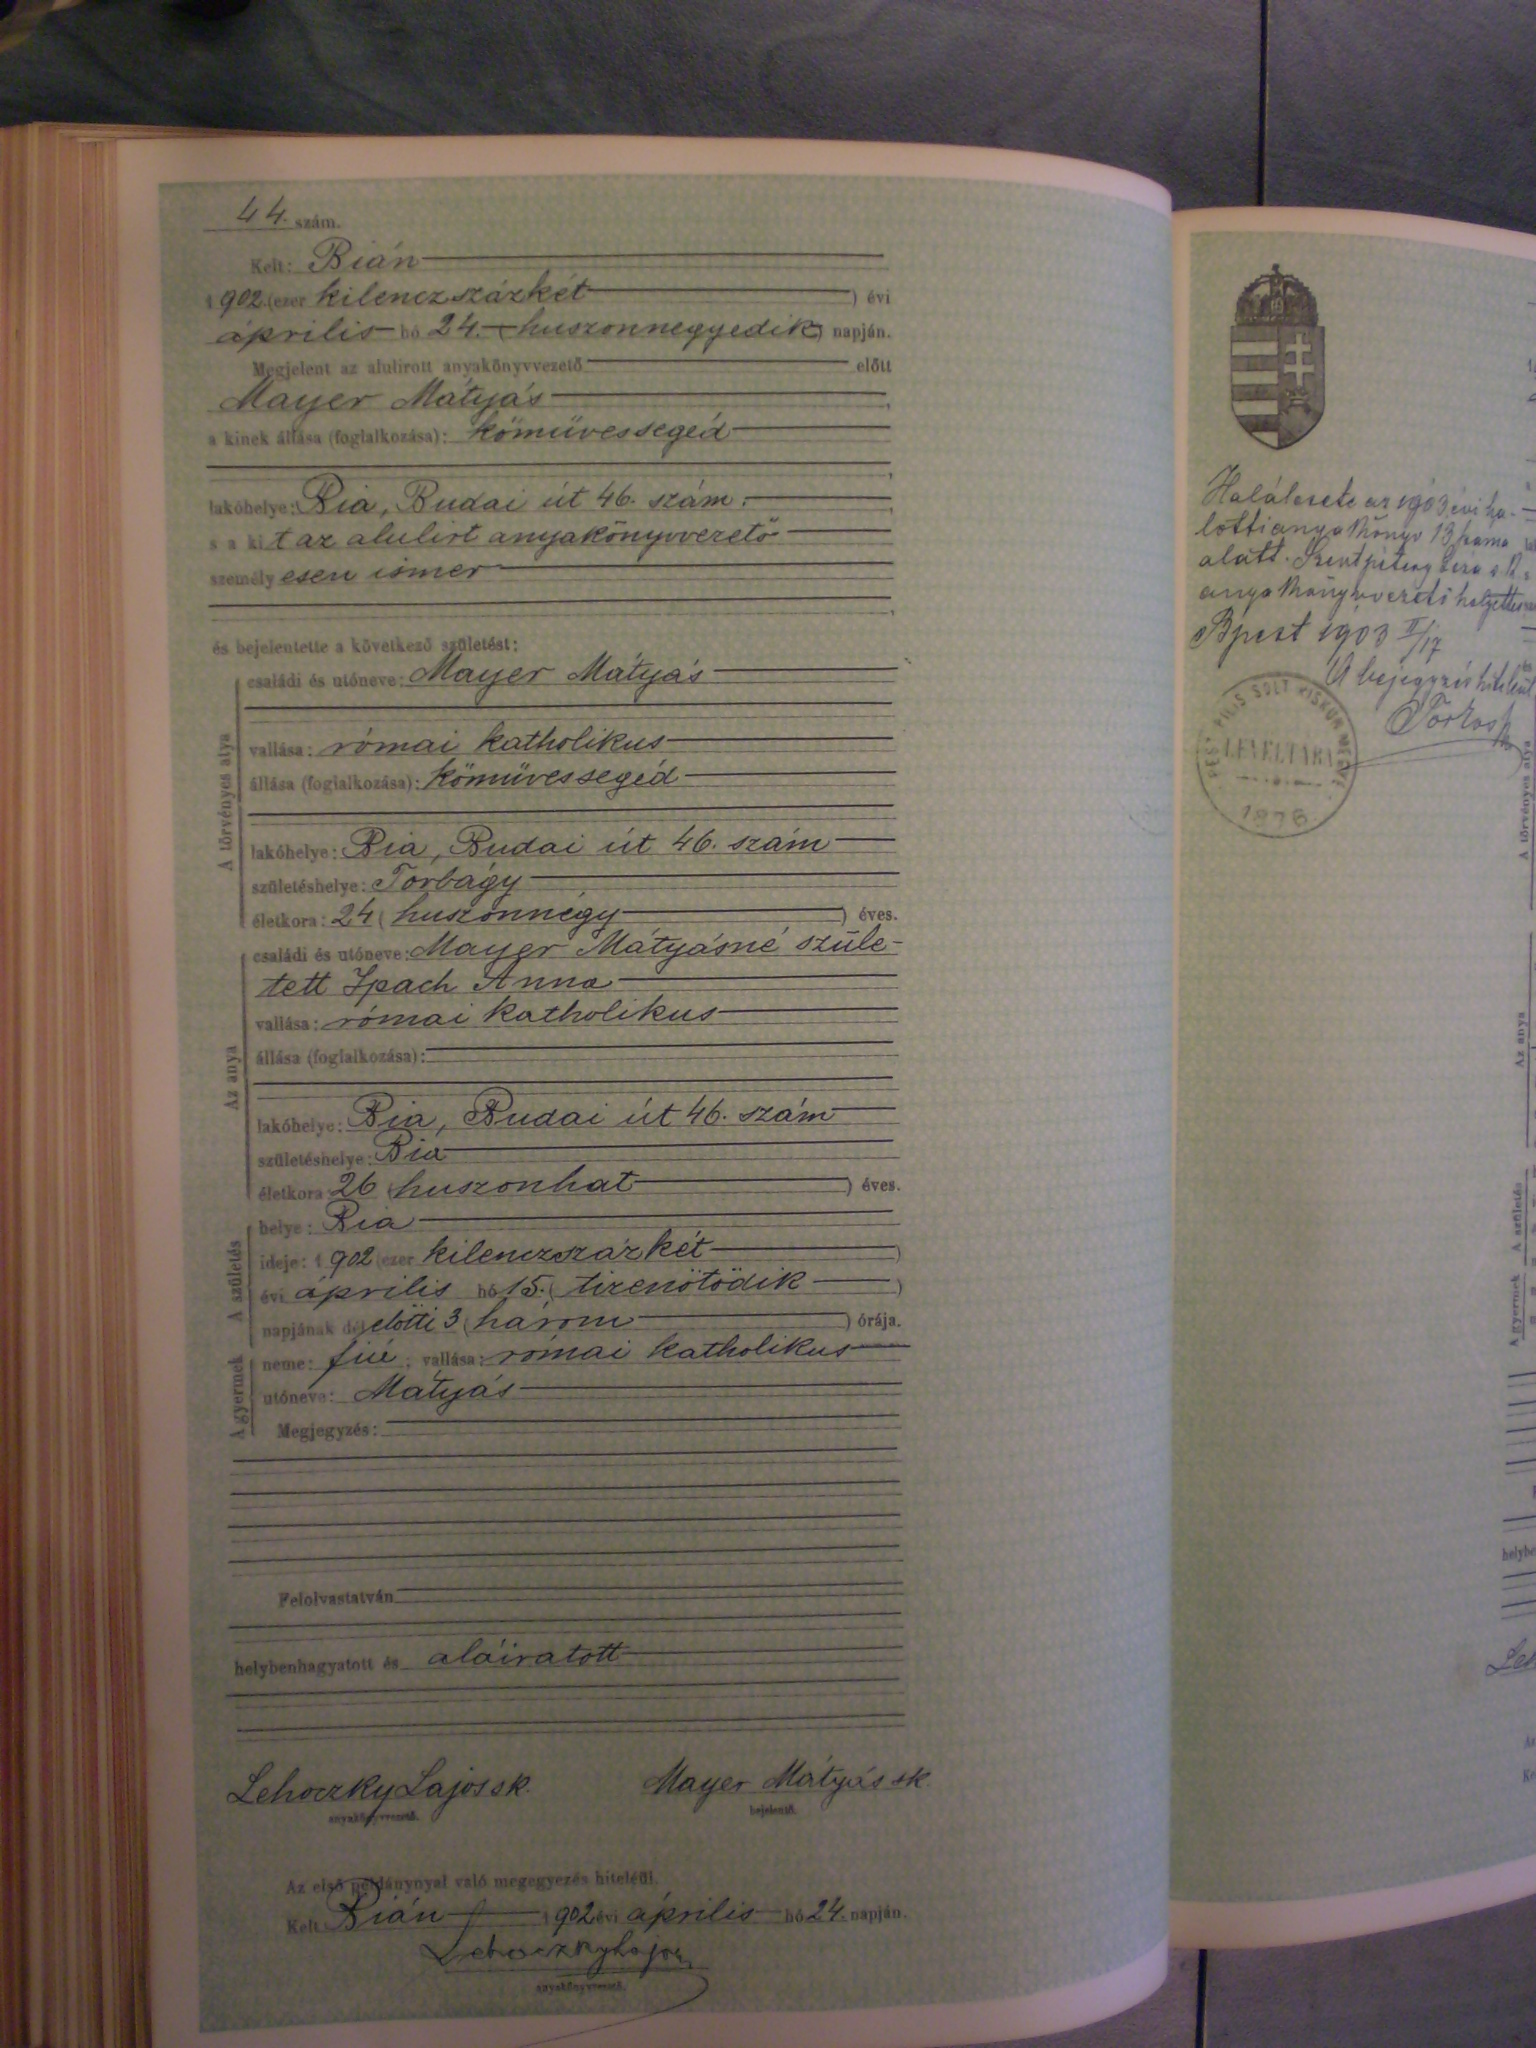 44. szám.
Kelt: Bián
1902 (ezer kilenczszázkét ) évi
április hó 24. (huszonnegyedik) napján.
Megjelent az alulirott anyakönyvvezető előtt
Mayer Mátyás ,
a kinek állása (foglalkozása): kőmüvessegéd
,
lakóhelye: Bia, Budai út 46. szám. ,
s a kit az alulirt anyakönyvvezető
személyesen ismer
,
és bejelentette a következő születést:
A törvényes atya
családi és utóneve: Mayer Mátyás
vallása: római katholikus
állása (foglalkozása): kőmüvessegéd
lakóhelye: Bia, Budai út 46. szám
születéshelye: Torbágy
életkora: 24 (huszonnégy ) éves.
Az anya
családi és utóneve: Mayer Mátyásné szüle-
tett Ipach Anna
vallása: római katholikus
állása (foglalkozása):
lakóhelye: Bia, Budai út 46. szám
születéshelye: Bia
életkora 26 (huszonhat ) éves.
A születés
helye: Bia
ideje: 1902 (ezer kilenczszázkét )
évi április hó 15. (tizenötödik )
napjának délelőtti 3 (három ) órája.
A gyermek
neme: fiú ; vallása: római katholikus
utóneve: Mátyás
Megjegyzés:
Felolvastatván
helybenhagyatott és aláiratott
Lehoczky Lajos sk. Mayer Mátyás sk.
anyakönyvvezető. bejelentő.
Az első példánynyal való megegyezés hiteléül.
Kelt Bián 1902 évi április hó 24. napján.
Lehoczky Lajos
anyakönyvvezető.
Halálesete az 1903 évi ha-
lotti anyakönyv 13 száma
alatt.
anyakönyvvezető helyettes
Bpest 1903 II/17
A bejegyzés hiteléül
PEST PILIS SOLT KISKUN MEGYE
LEVÉLTÁRA
1876
A törvényes atya
Az anya
A születés
A gyermek